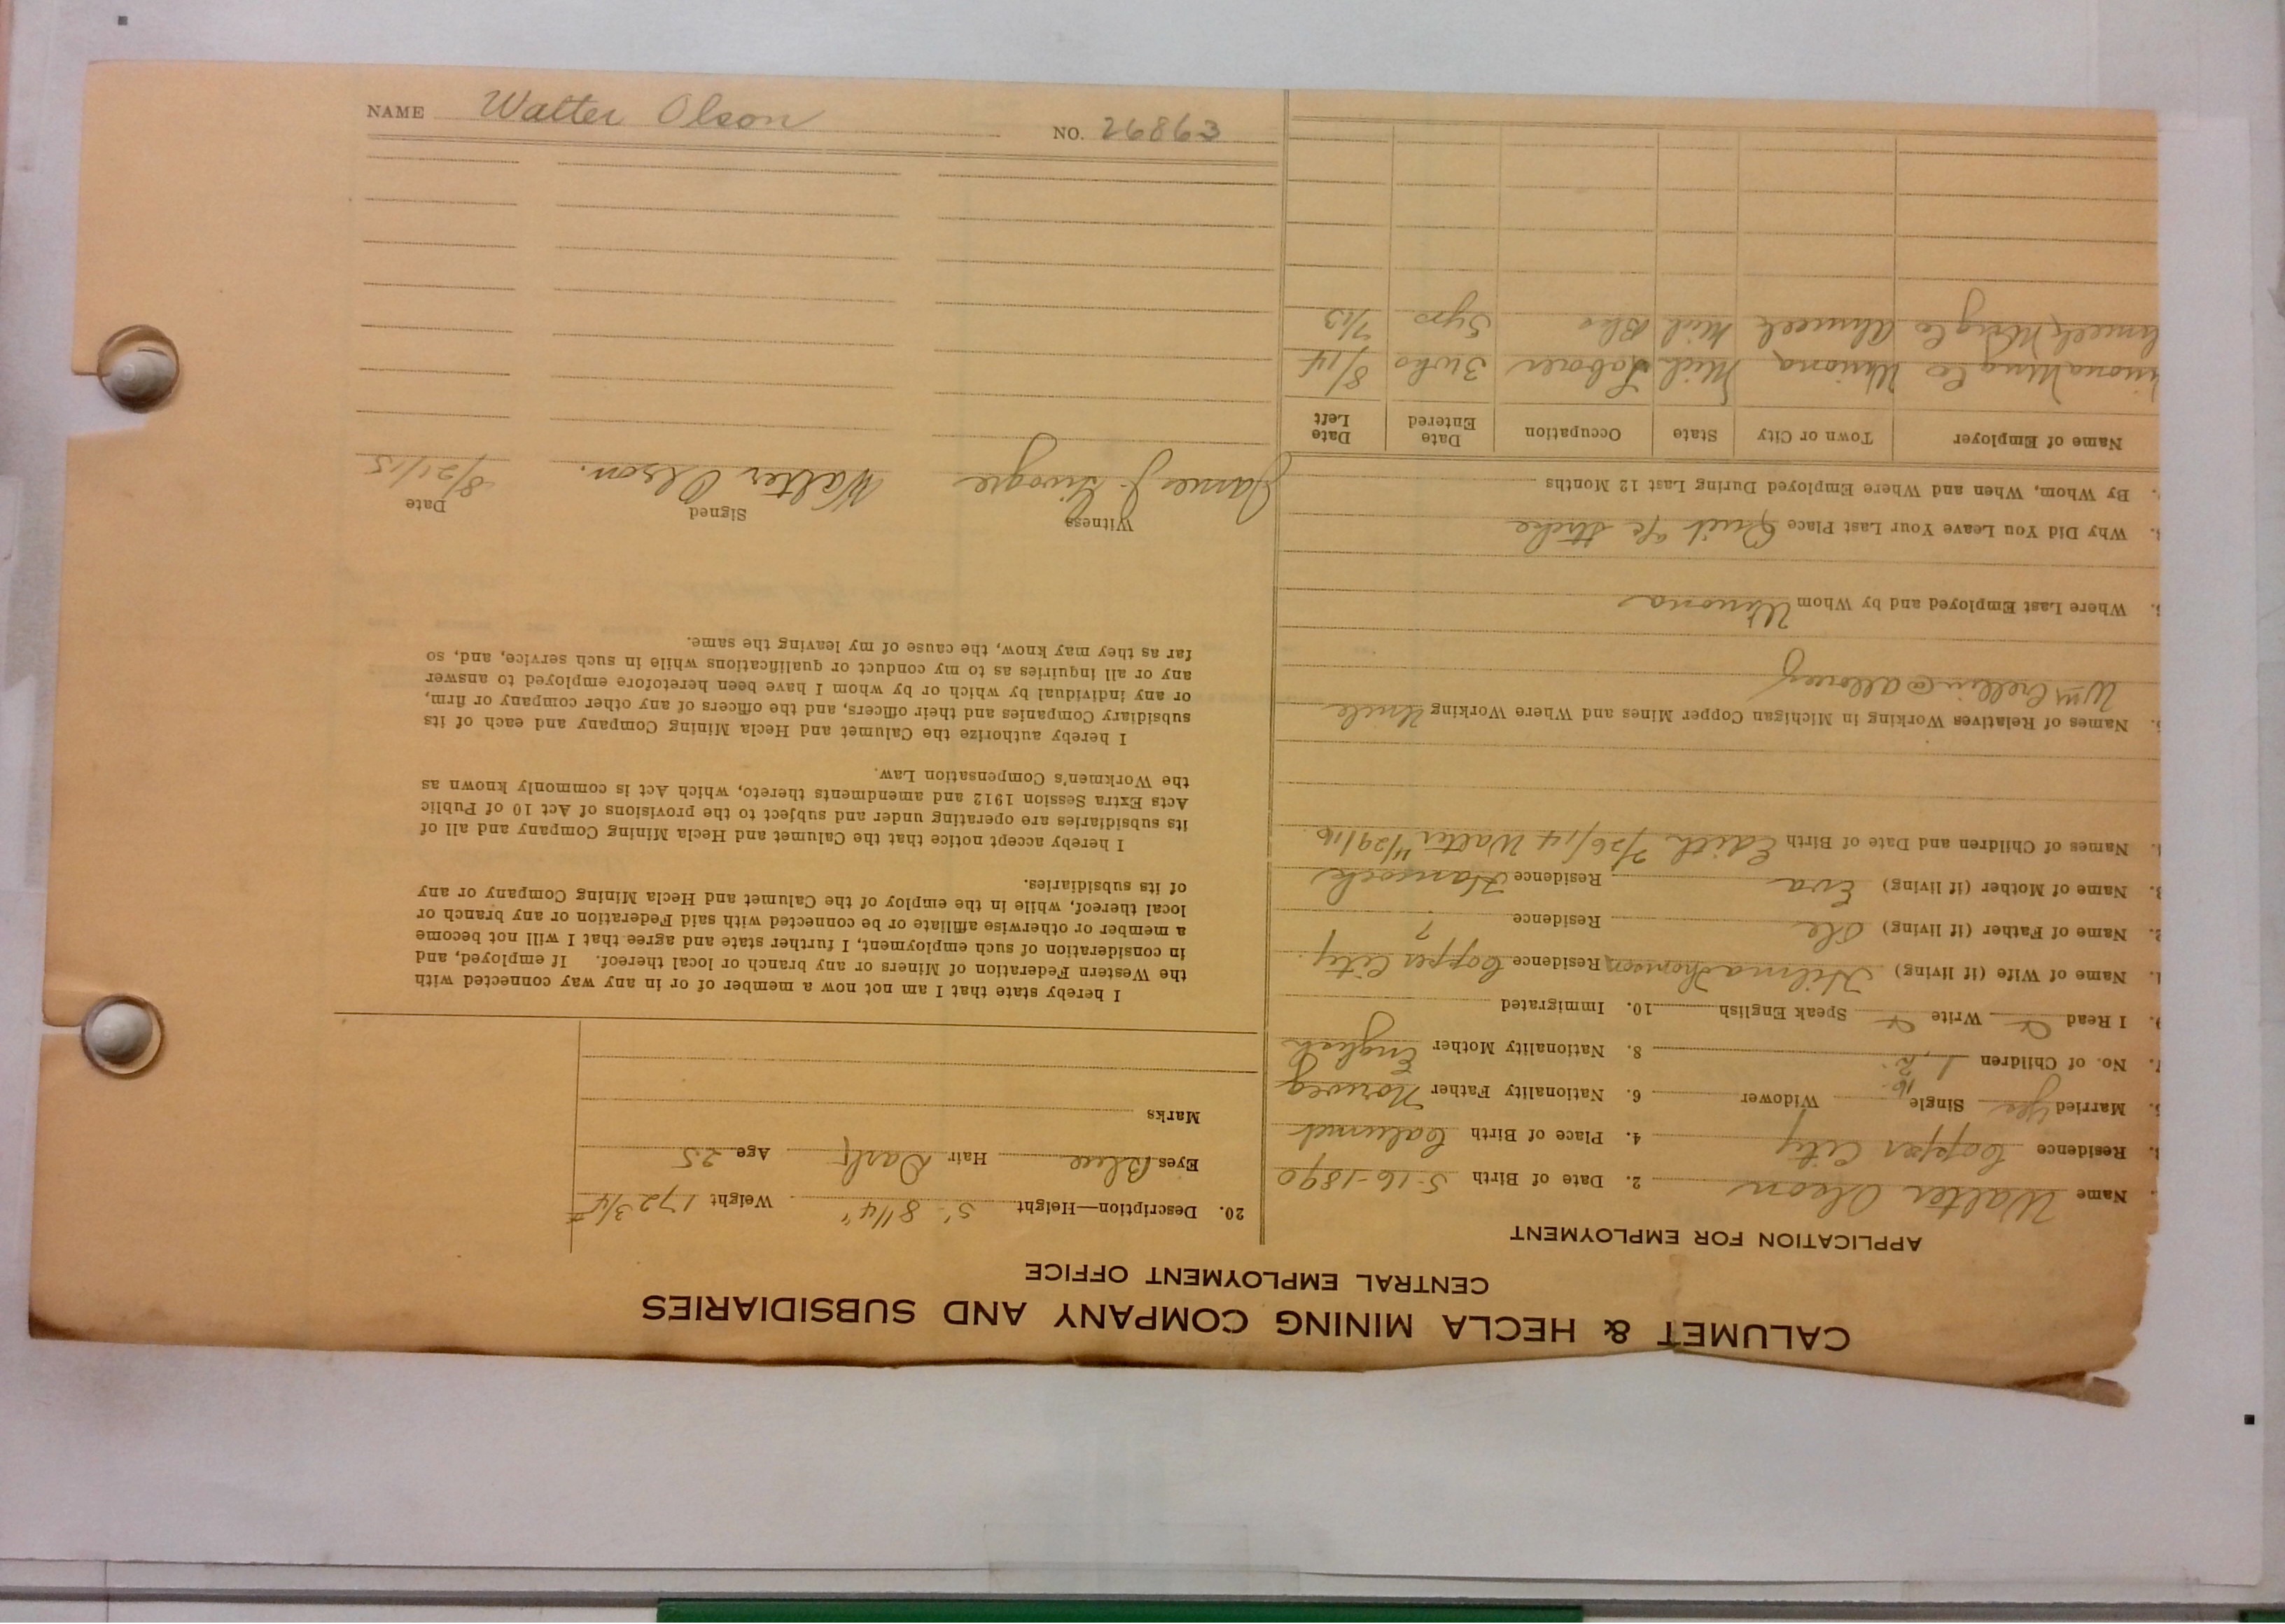 NAME Walter Olson NO. 26863
CALUMET & HECLA MINING COMPANY AND SUBSIDIARIES
CENTRAL EMPLOYMENT OFFICE
APPLICATION FOR EMPLOYMENT
Name Walter Olson 2. Date of Birth 5-16-1890
Residence Copper City 4. Place of Birth Calumet
Married yes Single Widower 6. Nationality Father Norweg
16
No. of Children 1, 2. 8. Nationality Mother English
9. I Read Write Speak English 10. Immigrated
Name of Wife (if living) Hilma Residence Copper City.
2. Name of Father (if living) Ole Residence ?
3. Name of Mother (if living) Eva Residence Hancock
Names of Children and Date of Birth Edith 7/26/14 Walter 11/29/16
5. Names of Relatives Working in Michigan Copper Mines and Where Working Uncle
Wm Crellin @ Allouez
Where Last Employed and by Whom Winona
Why Did You Leave Your Last Place Quit a/c strike
By Whom, When and Where Employed During Last 12 Months
Name of Employer Town or City State Occupation Date Entered Date Left
inona Mng Co Winona Mich Laborer 3 wks 8/14
hmeek Mng Co Ahmeek Mich Bls 3 yrs 7/13
20. Description—Height 5' 8 1/4" Weight 172 3/4#
Eyes Blue Hair Dark Age 25
Marks
I hereby state that I am not now a member of or in any way connected with
the Western Federation of Miners or any branch or local thereof. If employed, and
in consideration of such employment, I further state and agree that I will not become
a member or otherwise affiliate or be connected with said Federation or any branch or
local thereof, while in the employ of the Calumet and Hecla Mining Company or any
of its subsidiaries.
I hereby accept notice that the Calumet and Hecla Mining Company and all of
its subsidiaries are operating under and subject to the provisions of Act 10 of Public
Acts Extra Session 1912 and amendments thereto, which Act is commonly known as
the Workmen's Compensation Law.
I hereby authorize the Calumet and Hecla Mining Company and each of its
subsidiary Companies and their officers, and the officers of any other company or firm,
or any individual by which or by whom I have been heretofore employed to answer
any or all inquiries as to my conduct or qualifications while in such service, and, so
far as they may know, the cause of my leaving the same.
Witness Signed Date
James J. Walter Olson. 8/21/15